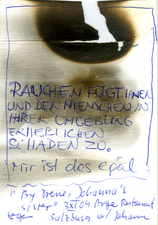 RAUCHEN FÜGT IHNEN
UND DEN MENSCHEN IN
IHRER UMGEBUNG
ERHEBLICHEN
SCHADEN ZU.
Mir ist das egal
" By Irene, Johanna's
sister" Restaurant
Salzburg w/ Johann